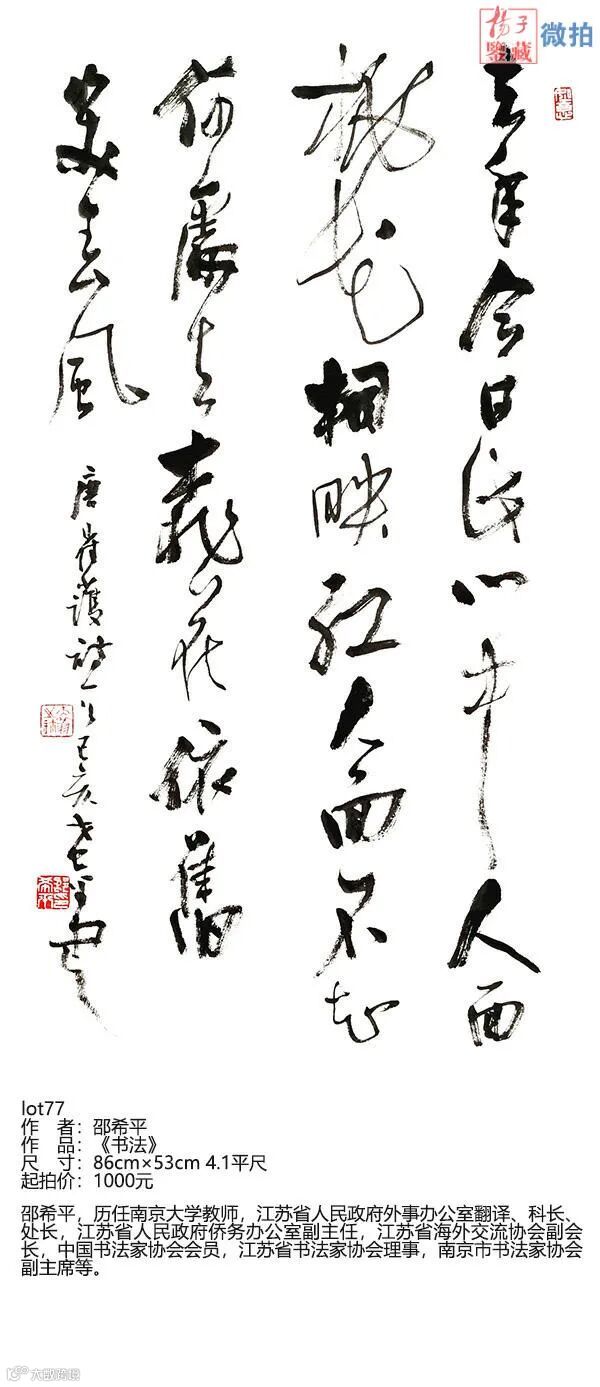 揚子
鑒藏
微拍
去年今日此门中人面
桃花相映红人面不知
何處去桃花依舊
笑春风
唐崔護詩一首己亥
lot77
作　者：邵希平
作　品：《书法》
尺　寸：86cm×53cm 4.1平尺
起拍价：1000元
邵希平，历任南京大学教师，江苏省人民政府外事办公室翻译、科长、
处长，江苏省人民政府侨务办公室副主任，江苏省海外交流协会副会
长，中国书法家协会会员，江苏省书法家协会理事，南京市书法家协会
副主席等。
大数跨境